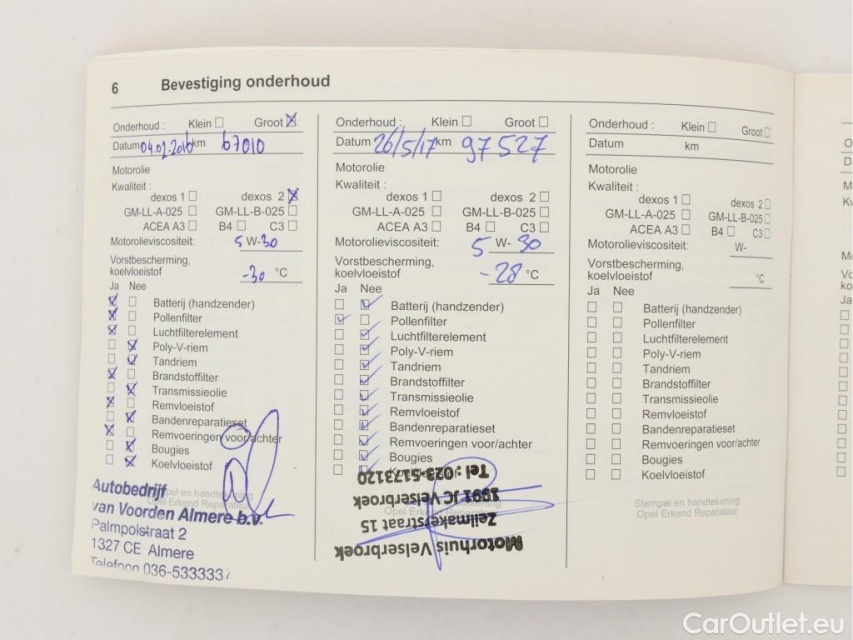 6 Bevestiging onderhoud
Onderhoud : Klein Groot
Datum 04.02.2016 km 67010
Motorolie
Kwaliteit :
dexos 1 dexos 2
GM-LL-A-025 GM-LL-B-025
ACEA A3 B4 C3
Motorolieviscositeit: 5 W-30
Vorstbescherming,
koelvloeistof -30 °C
Ja Nee
Batterij (handzender)
Pollenfilter
Luchtfilterelement
Poly-V-riem
Tandriem
Brandstoffilter
Transmissieolie
Remvloeistof
Bandenreparatieset
Remvoeringen voor/achter
Bougies
Koelvloeistof
Stempel en handtekening
Opel Erkend Reparateur
Autobedrijf
van Voorden Almere b.v.
Palmpolstraat 2
1327 CE Almere
Telefoon 036-533333
Onderhoud : Klein Groot
Datum 26/5/17 km 97527
Motorolie
Kwaliteit :
dexos 1 dexos 2
GM-LL-A-025 GM-LL-B-025
ACEA A3 B4 C3
Motorolieviscositeit: 5 W- 30
Vorstbescherming,
koelvloeistof -28 °C
Ja Nee
Batterij (handzender)
Pollenfilter
Luchtfilterelement
Poly-V-riem
Tandriem
Brandstoffilter
Transmissieolie
Remvloeistof
Bandenreparatieset
Remvoeringen voor/achter
Bougies
Koelvloeistof
Opel Erkend Reparateur
Motorhuis Velserbroek
Zeilmakerstraat 15
1991 JC Velserbroek
Tel : 023-5173120
Onderhoud : Klein Groot
Datum km
Motorolie
Kwaliteit :
dexos 1 dexos 2
GM-LL-A-025 GM-LL-B-025
ACEA A3 B4 C3
Motorolieviscositeit: W-
Vorstbescherming,
koelvloeistof °C
Ja Nee
Batterij (handzender)
Pollenfilter
Luchtfilterelement
Poly-V-riem
Tandriem
Brandstoffilter
Transmissieolie
Remvloeistof
Bandenreparatieset
Remvoeringen voor/achter
Bougies
Koelvloeistof
Stempel en handtekening
Opel Erkend Reparateur
CarOutlet.eu